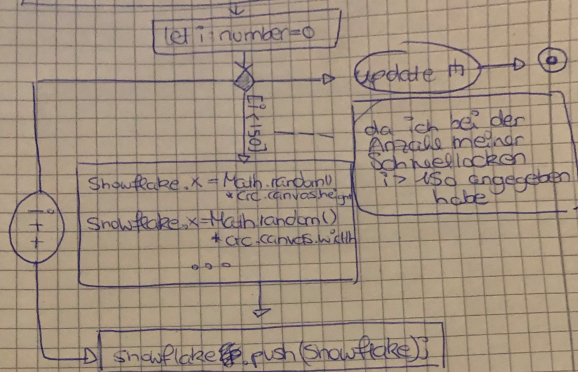 let i: number=0
update
[i<150]
da ich bei der
Anzahl meiner
Schneeflocken
i> 150 angegeben
habe
Snowflake.x = Math.random()
* crc.canvas.heigh
Snowflake.x=Math.random()
* crc.canvas.width
...
i++
snowflake.push(Snowflake);